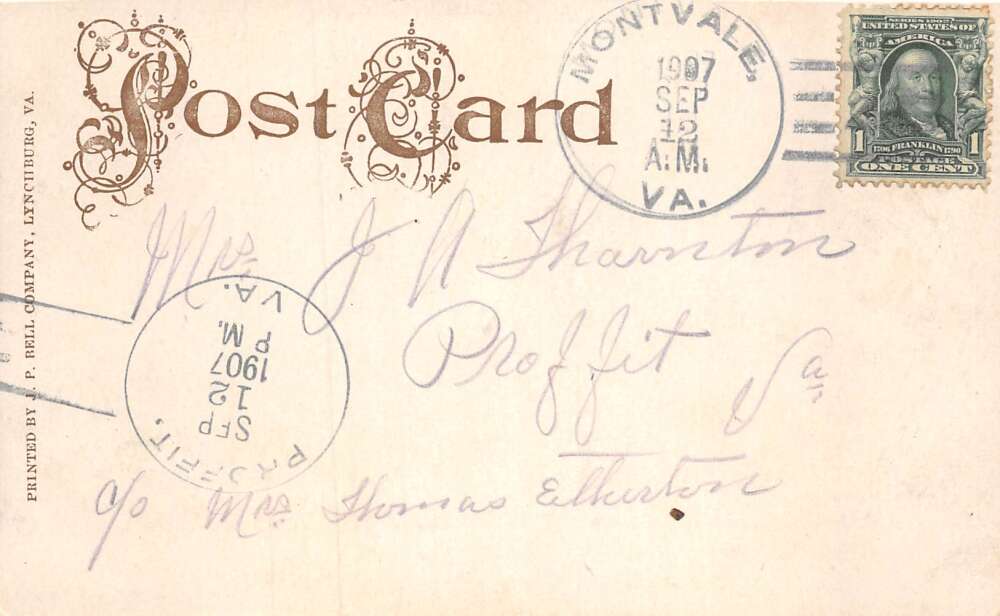 Post Card
MONTVALE,
1907
SEP
12
A.M.
VA.
SERIES 1902
UNITED STATES OF
AMERICA
1706 FRANKLIN 1790
1 POSTAGE 1
ONE CENT
PRINTED BY J. P. BELL COMPANY, LYNCHBURG, VA.
Mrs J A Tharnton
Proffit Va
c/o Mrs Thomas Elkerton
PROFFIT,
SEP
12
1907
P M.
VA.